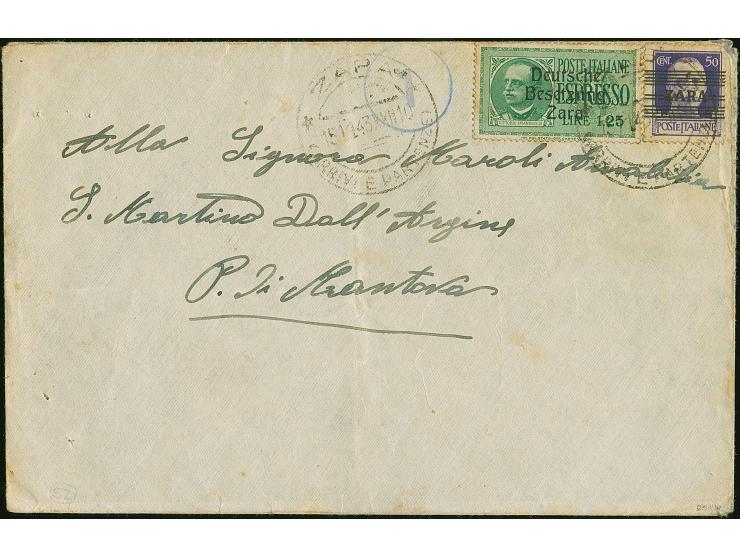 POSTE ITALIANE
ESPRESSO
LIRE 1,25
Deutsche
Besetzung
Zara
CENT. 50
ZARA
POSTE ITALIANE
ZARA
ARRIVI E PARTENZE
Alla Signora Maroli
S. Martino Dall'Argine
P. di Mantova
52